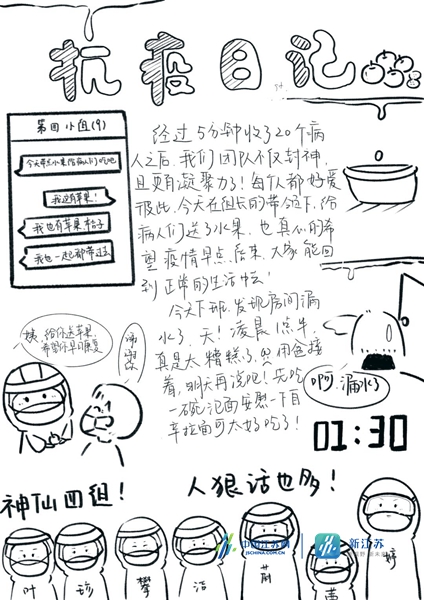 抗疫日记
第四小组(9)
今天带点水果给病人们吃吧
我这有苹果!
我也有苹果、桔子
我也一起都带过去
经过5分钟收了20个病
人之后,我们团队不仅封神,
且更有凝聚力了!每个人都好爱
彼此,今天在组长的带领下,给
病人们送了水果,也真心的希
望疫情早点结束,大家能回
到正常的生活中去!
今天下班,发现房间漏
水了,天!凌晨1点半,
真是太糟糕了,只能用盆接
着,明天再说吧!先吃
一碗泡面安慰一下自
辛拉面可太好吃了!
姨,给你送苹果,
希望你早日康复
谢谢
啊,漏水了
01:30
神仙四组!
人狠话也多!
叶
珍
攀
洁
荊
茜
婷
中国江苏网
JSCHINA.COM.CN
新江苏